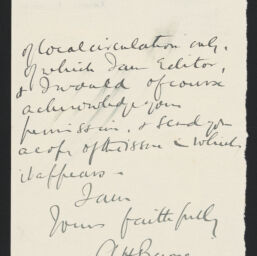 of local circulation only,
of which I am Editor,
& I would of course
acknowledge your
permission, & send you
a copy of the issue in which
it appears.
I am
Yours faithfully